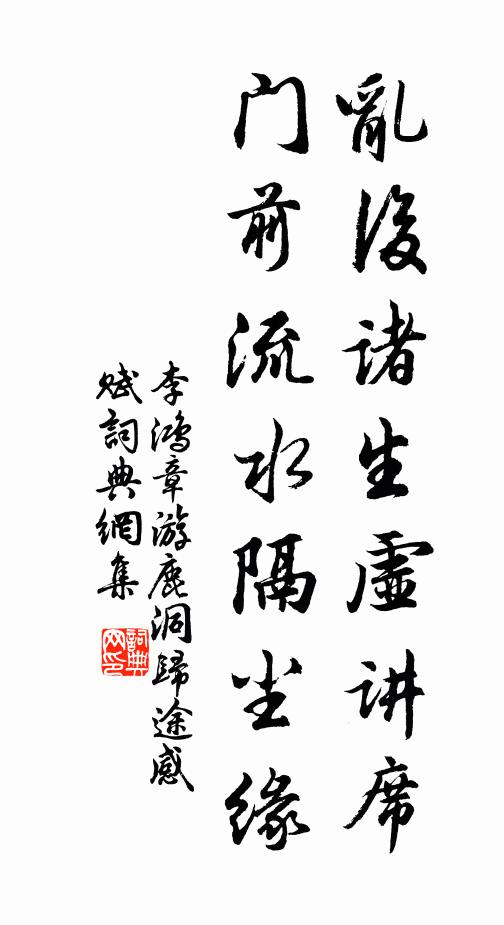 亂後諸生虛讲席
门前流水隔尘緣
李鴻章游鹿洞歸途感
赋詞典網集
詞典
网印